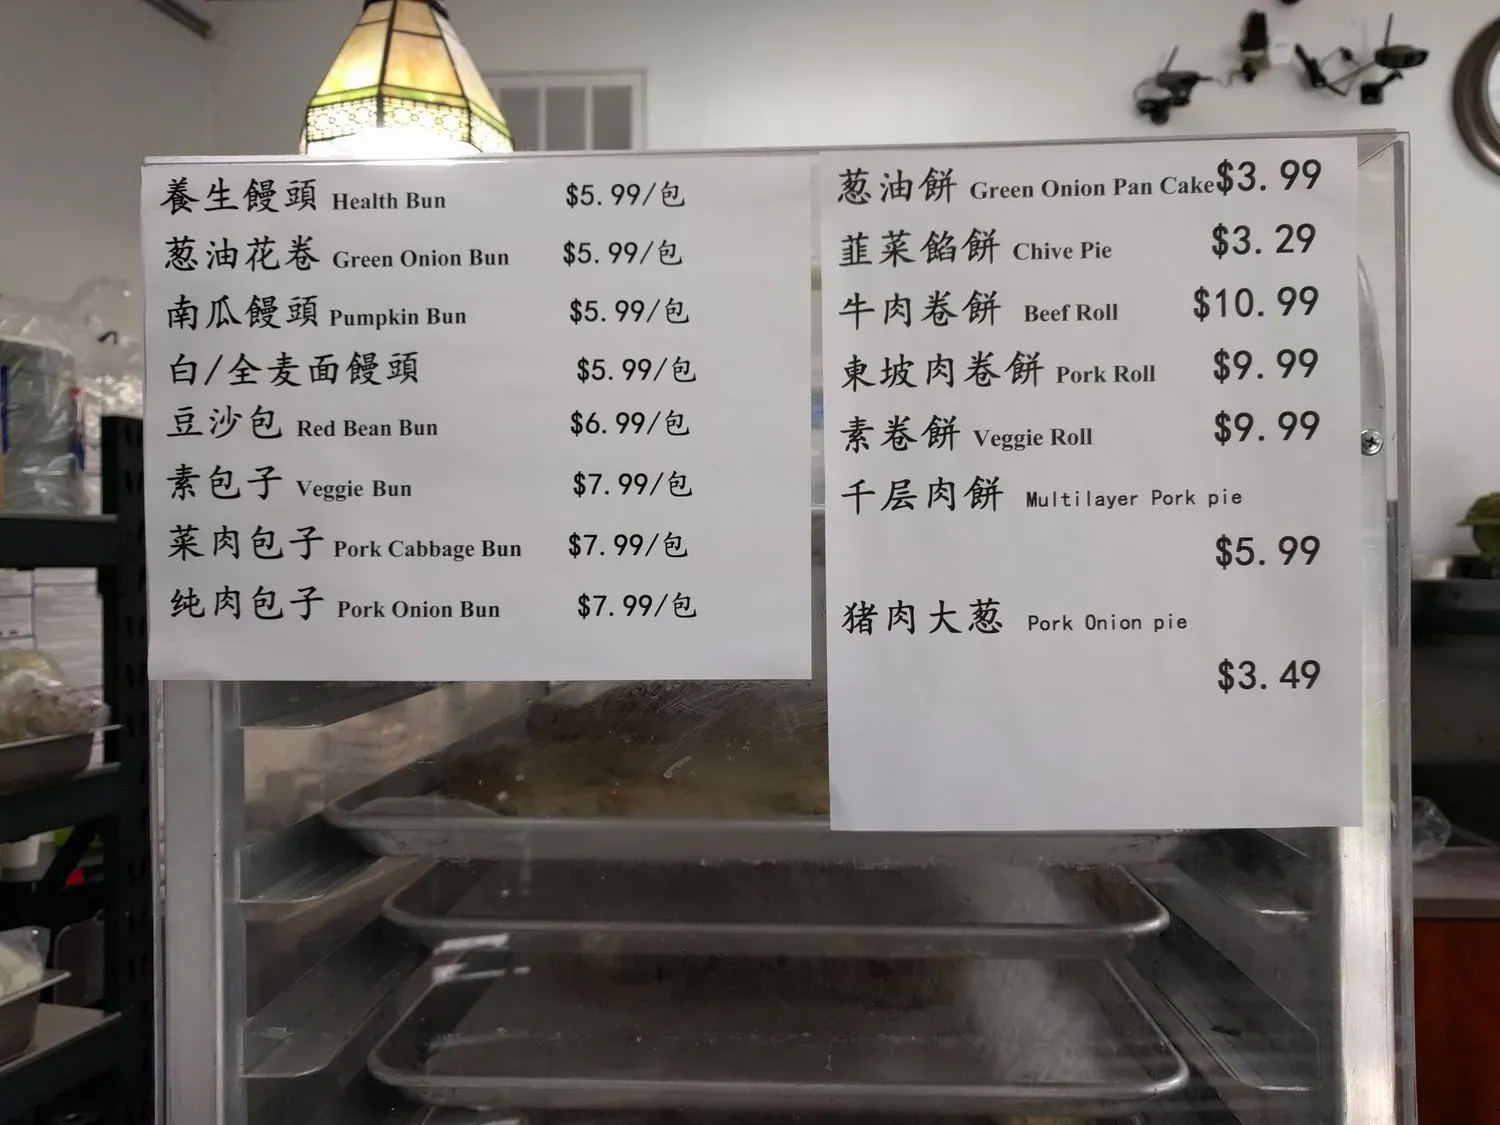 養生饅頭 Health Bun $5.99/包
葱油花卷 Green Onion Bun $5.99/包
南瓜饅頭 Pumpkin Bun $5.99/包
白/全麦面饅頭 $5.99/包
豆沙包 Red Bean Bun $6.99/包
素包子 Veggie Bun $7.99/包
菜肉包子 Pork Cabbage Bun $7.99/包
纯肉包子 Pork Onion Bun $7.99/包
葱油餅 Green Onion Pan Cake $3.99
韮菜餡餅 Chive Pie $3.29
牛肉卷餅 Beef Roll $10.99
東坡肉卷餅 Pork Roll $9.99
素卷餅 Veggie Roll $9.99
千层肉餅 Multilayer Pork pie
$5.99
猪肉大葱 Pork Onion pie
$3.49